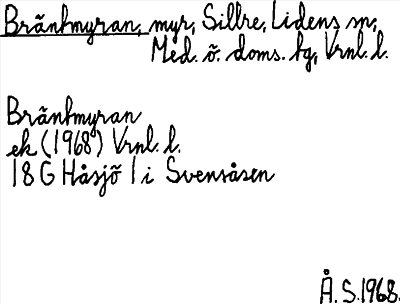 Bräntmyran, myr, Sillre, Lidens sn,
Med. ö. doms. tg, Vrnl. l.
Bräntmyran
ek (1968) Vrnl. l.
18 G Håsjö 1 i Svensåsen
Å. S. 1968.